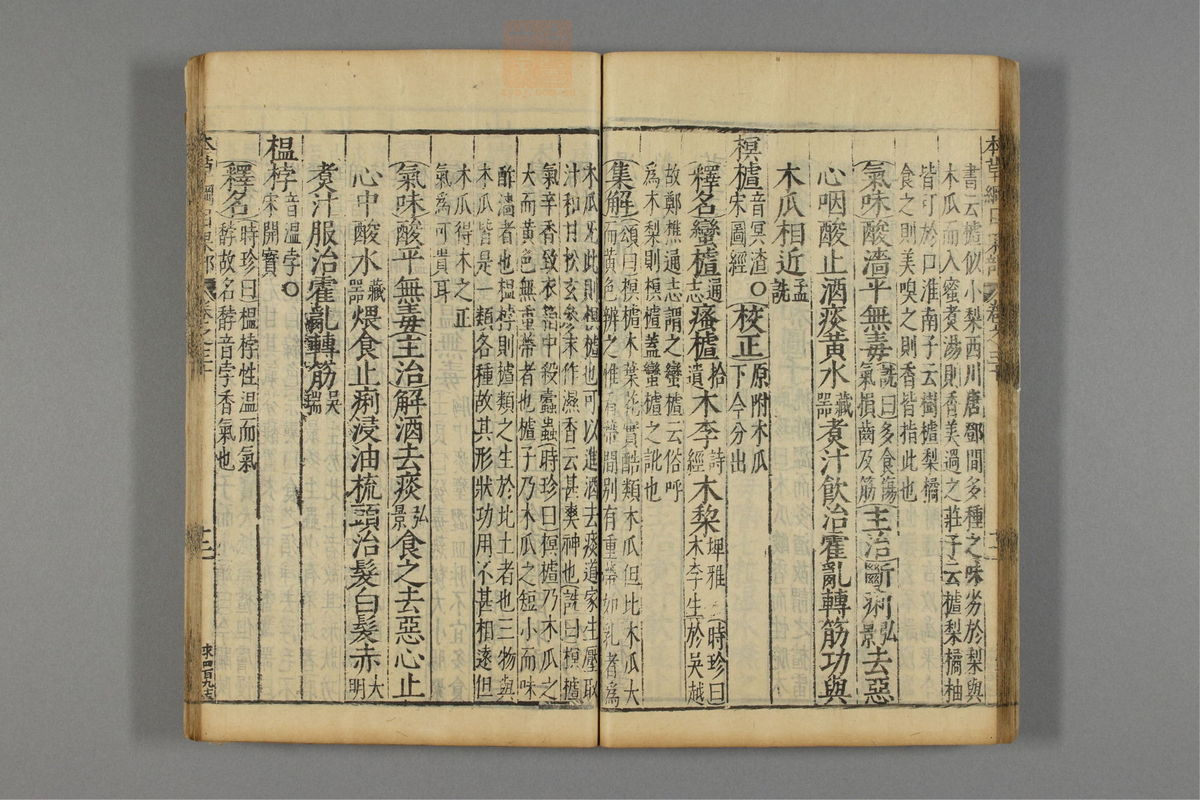 書云樝似小梨西川唐鄧間多種之味劣於梨與
木瓜而入蜜煮湯則香美過之莊子云樝梨橘柚
皆可於口淮南子云樹樝梨橘
食之則美嗅之則香皆指此也
氣味酸濇平無毒詵曰多食傷
氣損齒及筋主治斷痢弘景去惡
心咽酸止酒痰黃水藏器煮汁飲治霍亂轉筋功與
木瓜相近孟詵
榠樝音冥渣○宋圖經校正原附木瓜下今分出
釋名蠻樝通志瘙樝拾遺木李詩經木梨埤雅時珍曰
木李生於吳越
故鄭樵通志謂之蠻樝云俗呼
為木梨則榠樝蓋蠻樝之訛也
集解頌曰榠樝木葉花實酷類木瓜但比木瓜大
而黃色辨之惟看蒂間別有重蒂如乳者為
木瓜無此則榠樝也可以進酒去痰道家生壓取
汁和甘松玄參末作濕香云甚爽神也詵曰榠樝
氣辛香致衣箱中殺蠹蟲時珍曰榠樝乃木瓜之
大而黃色無重蒂者也樝子乃木瓜之短小而味
酢濇者也榲桲則樝類之生於北土者也三物與
木瓜皆是一類各種故其形狀功用不甚相遠但
木瓜得木之正
氣為可貴耳
氣味酸平無毒主治解酒去痰弘景食之去惡心止
心中酸水藏器煨食止痢浸油梳頭治髮白髮赤大明
煮汁服治霍亂轉筋吳瑞
榲桲音溫孛○宋開寶
釋名時珍曰榲桲性溫而氣
馞故名馞音孛香氣也